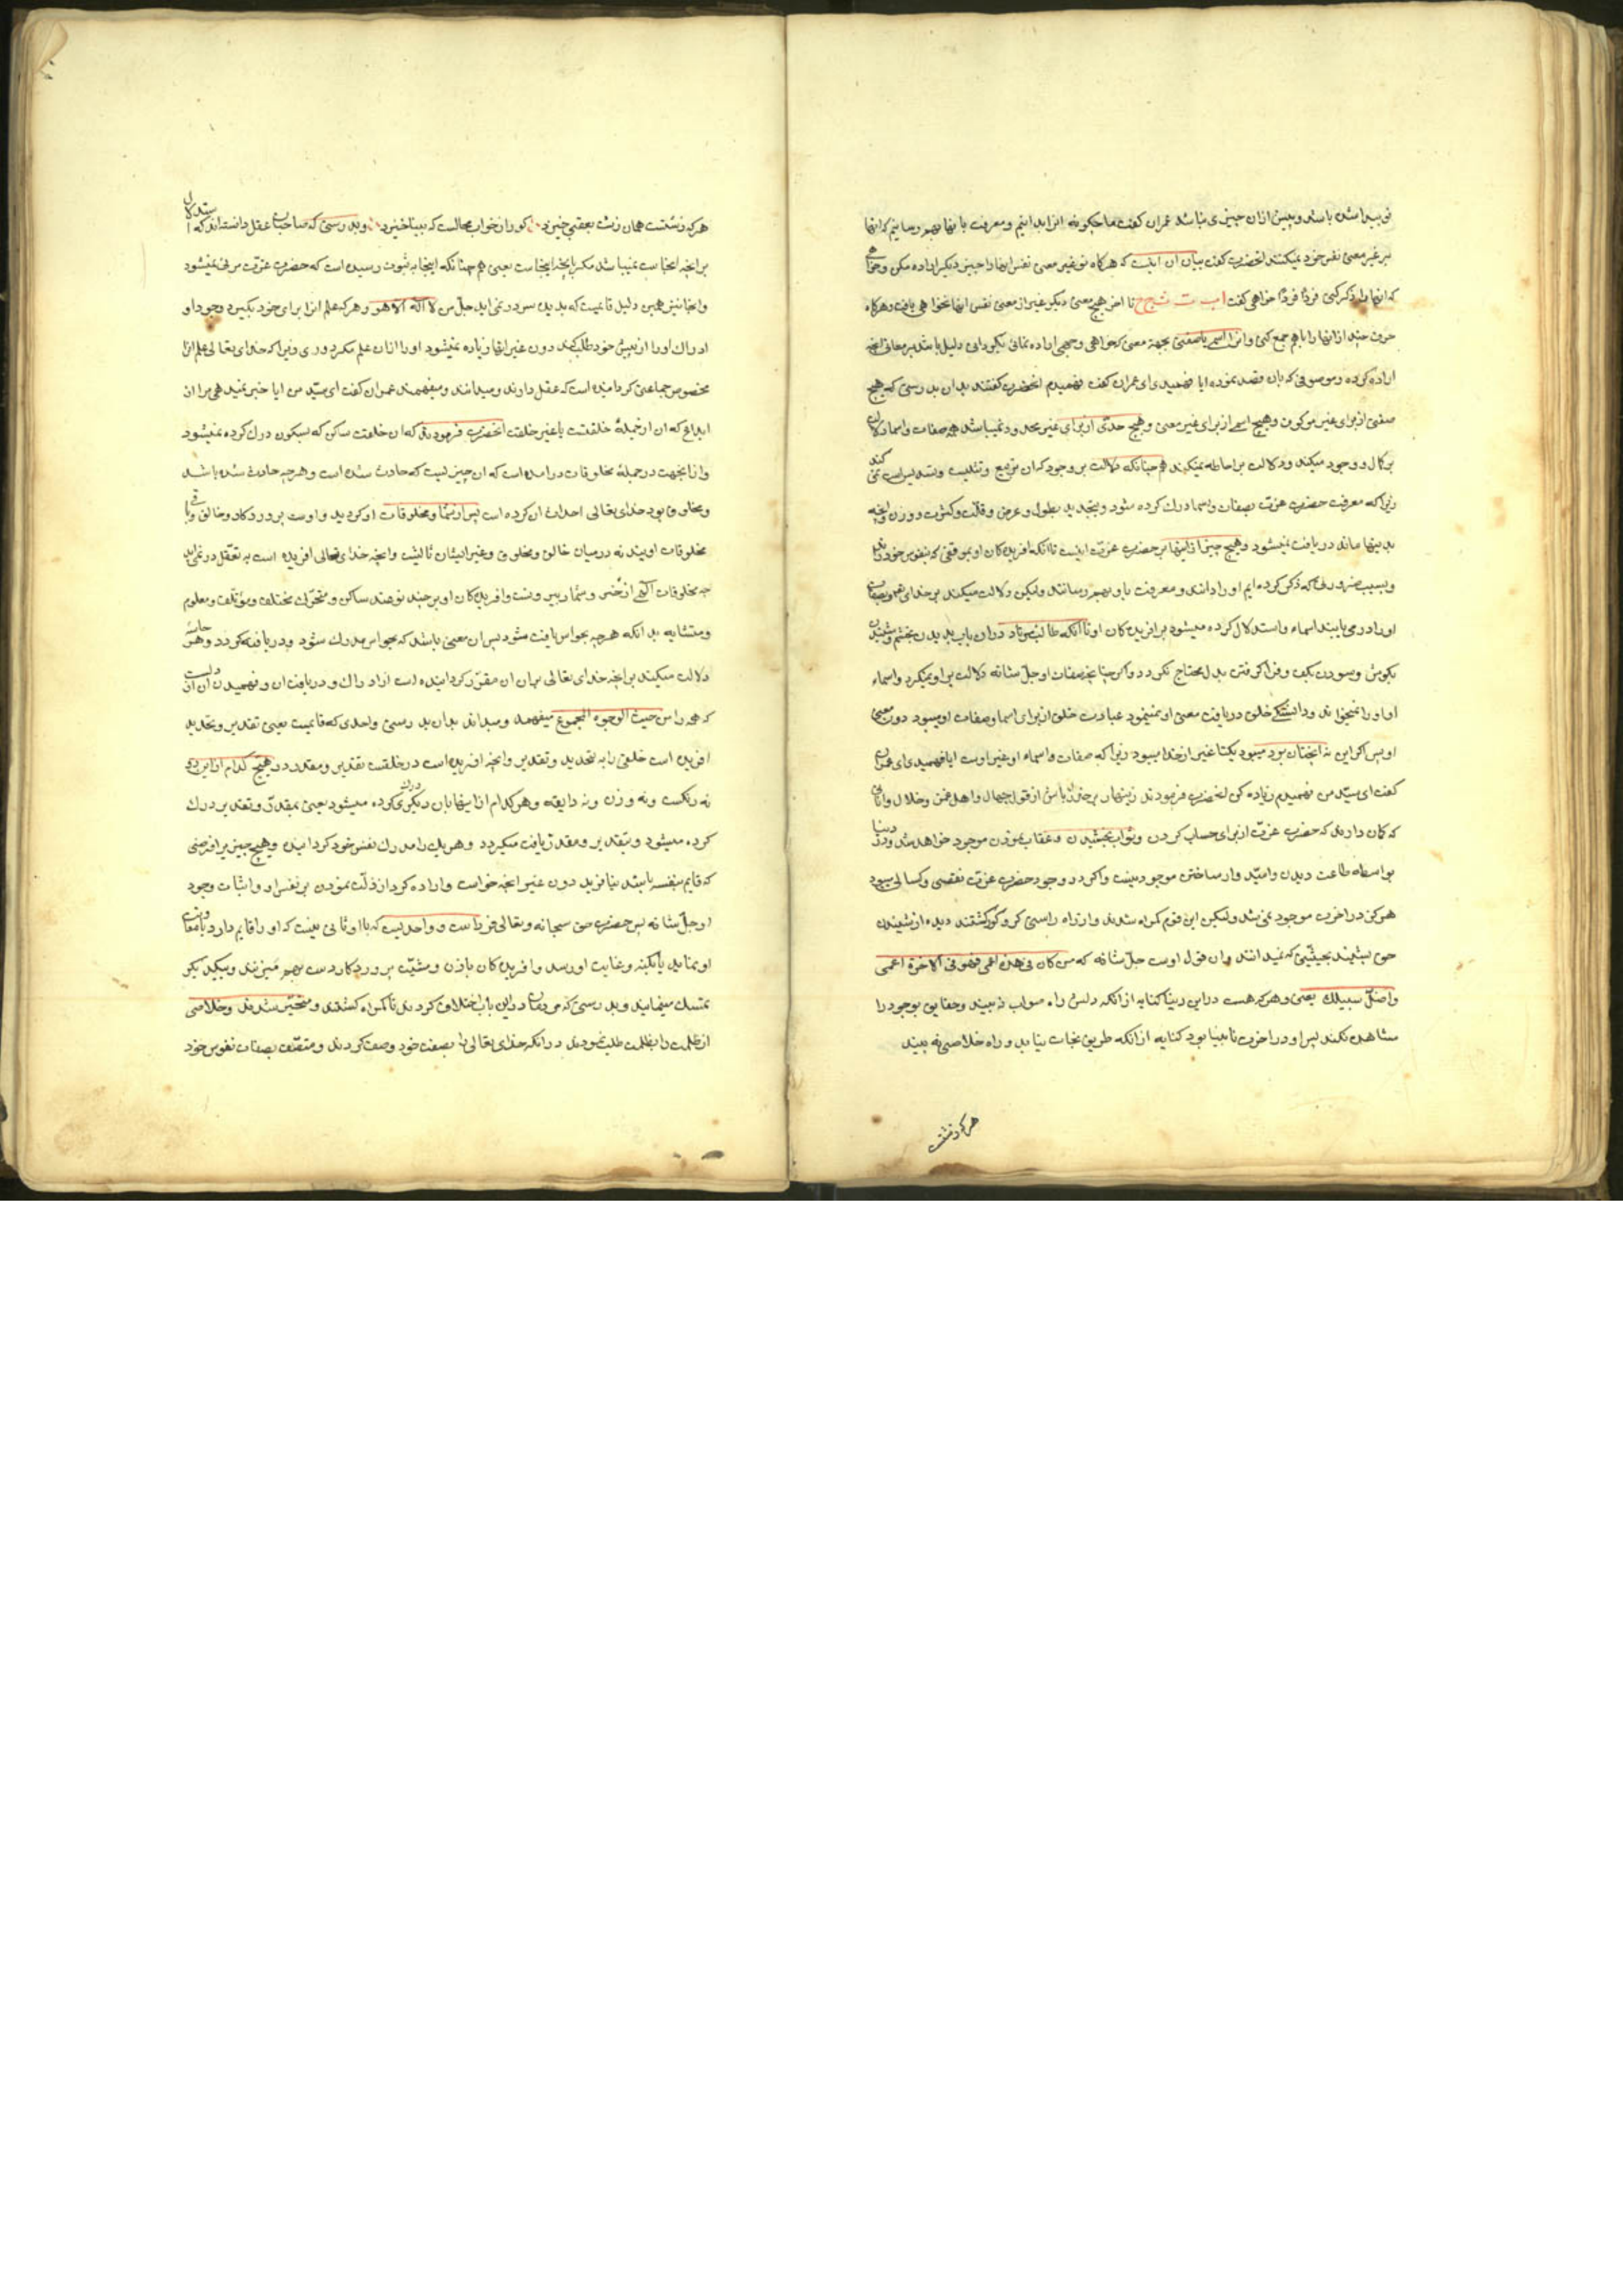 نو پیدا شده باشد و پیش ازان چیزی نباشد عمران گفت ما چکونه انرا بدانیم و معرفت بانها بهم رسانیم که انها
بر غیر معنی نفس خود نمیکنند انحضرت گفت بیان ان اینست که هرکاه تو غیر معنی نفس انها را چیز دیکر اراده مکن و خواهی
که انها را ذکر کنی فردًا فردًا خواهی گفت ا ب ت ث ج ح تا اخر هیچ معنی دیکر غیر از معنی نفس انها نخواهی یافت و هرکاه
حرف چند از انها را با هم جمع کنی و انرا اسمی یا صفتی بجهة معنی که خواهی و وجهی اراده نمائی بکردانی دلیل باشد بر معانی انچه
اراده کرده و موصوفی که بان قصد نموده ایا فهمیدی ای عمران گفت فهمیدم انحضرت گفتند بدان بدرستی که هیچ
صفتی از برای غیر موصوف و هیچ اسمی از برای غیر معنی و هیچ حدّی از برای غیر محدود نمیباشد همه صفات و اسما دلالت
بر کمال و وجود میکند و دلالت بر احاطه نمیکنند همچنانکه دلالت بر وجود که ان تربیع و تثلیث و تسدیس است نمی کند
زیرا که معرفت حضرت عزت بصفات و اسما درک کرده شود و بتحدید بطول و عرض و قلّت و کثرت و وزن و انچه
بدینها ماند دریافت نمیشود و هیچ چیز از اینها بر حضرت عزت اینست تا انکه افریدکان او بموقفی که نفوس خود
و بسبب ضرورتی که ذکر کرده ایم او را دانند و معرفت باو بهم رسانند ولیکن دلالت میکند بر خدای عز و بصفات
او را درمی یابند اسماء و استدلال کرده میشود بر افریدکان او تا انکه طالب مرتاد دران باب بدیدن بچشم و شنیدن
بکوش و بسودن بکف و فرا کرفتن بدل محتاج نکردد و اکر چنانچه صفات او جلّ شانه دلالت بر او نمیکرد و اسماء
او او را نمیخواند و دانستکی خلق دریافت معنی او نمینمود عبادت خلق از برای اسما و صفات او میبود دون معنی
او پس اکر این نه انچنان بود میبود یکتا غیر از خدا میبود زیرا که صفات و اسماء او غیر اوست ایا فهمیدی ای عمران
گفت ای سیّد من فهمیدم زیاده کن انحضرت فرمودند زینهار بر حذر باش از قول جهال و اهل عمی و ضلال وانانی
که کان دارند که حضرت عزت از برای حساب کردن و ثواب بخشیدن و عقاب نمودن موجود خواهد شد و در دنیا
بواسطه طاعت دیدن و امید وار ساختن موجود نیست و اکر در وجود حضرت عزت نقصی و کسالی میبود
هرکز در اخرت موجود نمی شد ولیکن این قوم کمراه شدند و از راه راستی کر و کور کشتند دیده از شنیدن
حق بستند بحیثیتی که نمیدانند و ان قول اوست جلّ شانه که من کان فی هذه اعمی فهو فی الاخرة اعمی
و اضلّ سبیلا یعنی و هرکه هست در این دنیا کنایه از انکه دلش راه صواب نه بیند و حقایق موجود را
مشاهده نکند پس او در اخرت نابینا بود کنایه از انکه طریق نجات نیابد و راه خلاصی نه بیند
هرکه زشت
هرکه زشتست همان زشت بعقبی خیزد کور از خواب محالست که بینا خیزد و بدرستی که صاحبان عقل دانسته اند که استدلال
بر انچه انجاست نمیباشد مکر بانچه اینجاست یعنی همچنانکه اینجا به ثبوت رسیده است که حضرت عزت مرئی نمیشود
و انجا نیز همین دلیل قایمست که بدیده سر در نمی اید جلّ من لا اله الا هو و هرکه علم انرا برای خود بکیرد و وجود او
ادراک او را از پیش خود طلب کند دون غیر انها زیاده نمیشود او را از ان علم مکر دوری زیرا که خدای تعالی علم انرا
مخصوص جماعتی کردانیده است که عقل دارند و میدانند و میفهمند عمران گفت ای سیّد من ایا خبر نمیدهی مرا از
ابداع که ان از جمله خلقست یا غیر خلقت انحضرت فرمودند که ان خلقت ساکن که بسکون درک کرده نمیشود
و از انجهت در جمله مخلوقات در امده است که ان چیزیست که حادث شده است و هرچه حادث شده باشد
و مخلوق بود خدای تعالی احداث ان کرده است پس از سما و مخلوقات او کردید و اوست پروردکار و خالق و باقی
مخلوقات اویند نه در میان خالق و مخلوق و غیر ایشان ثالثیست و انچه خدای تعالی افریده است به تعقّل در نمی اید
چه مخلوقات اکهی از حصر و شمار بیرونست و افریدکان او بر چند نوعند ساکن و متحرّک مختلف و موتلف و معلوم
و متشابه بدانکه هرچه بحواس یافت شود پس ان معنی باشد که بحواس مدرک شود و دریافته کردد و هر حاسّه
دلالت میکند بر انچه خدای تعالی بران ان مقرّر کردانیده است از ادراک و دریافت ان و فهمیدن دلست از ان
که همه را من حیث الوجود المجموع میفهمد و میداند بدان بدرستی واحدی که قایمست یعنی تقدیر و تحدید
افریده است خلقی را به تحدید و تقدیر و انچه افریده است در خلقت تقدیر و مقدر و هیچ کدام از این دو
نه رنکست و نه وزن و نه ذایقه و هر کدام از اینها بان دیکری درک کرده میشود یعنی بمقدر و تقدیر درک
کرده میشود و بتقدیر و مقدر یافت میکردد و هر یک را مدرک نفس خود کردانید و هیچ چیز بر افرضی
که قایم بنفسه باشد نیافرید دون غیر انچه خواست و اراده کرد از دلّت نمودن بر نفس او و اثبات وجود
او جلّ شانه پس حضرت حق سبحانه و تعالی فرد است و واحدیست که با او ثانی نیست که او را قایم دارد یا معاونت
او نماید یا بکنه و غایت او رسد و افریدکان باذن و مشیّت پروردکار دست بهم میزنند و بیکدیکر
تمسک مینمایند و بدرستی که مردمان در این باب اختلاف کردند تا کمراه کشتند و متحیّر شدند و خلاصی
از ظلمت را بظلمت طلب نمودند در انکه خدای تعالی را بصفت خود وصف کردند و متصّف بصفات نفوس خود